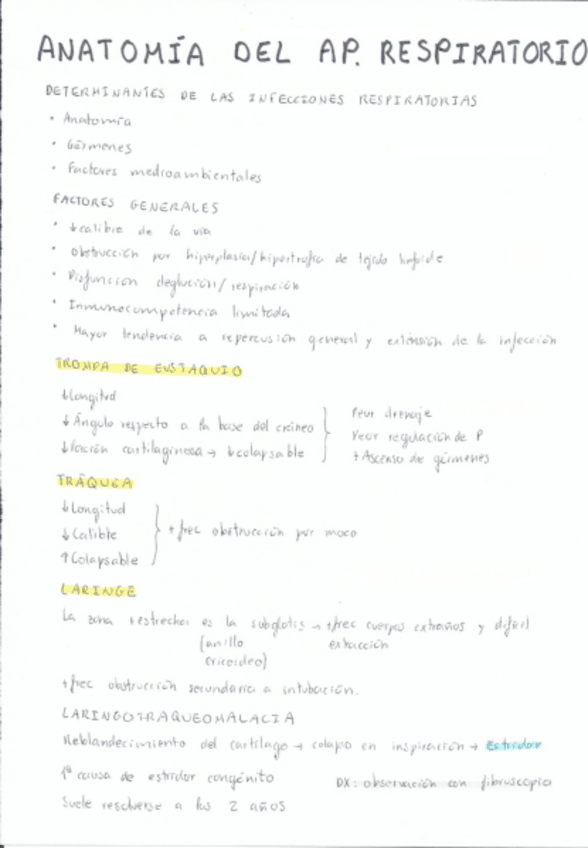 ANATOMÍA DEL AP. RESPIRATORIO
DETERMINANTES DE LAS INFECCIONES RESPIRATORIAS
• Anatomía
• Gérmenes
• Factores medioambientales
FACTORES GENERALES
• ↓calibre de la vía
• Obstrucción por hiperplasia/hipertrofia de tejido linfoide
• Disfunción deglución/respiración
• Inmunocompetencia limitada
• Mayor tendencia a repercusión general y extensión de la infección
TROMPA DE EUSTAQUIO
↓Longitud
↓Ángulo respecto a la base del cráneo
↓Porción cartilaginosa → ↓colapsable
Peor drenaje
Peor regulación de P
+Ascenso de gérmenes
TRÁQUEA
↓Longitud
↓Calibre
↑Colapsable
+frec obstrucción por moco
LARINGE
La zona +estrecha es la subglotis → +frec cuerpos extraños y difícil
(anillo extracción
cricoideo)
+frec obstrucción secundaria a intubación.
LARINGOTRAQUEOMALACIA
Reblandecimiento del cartílago → colapso en inspiración → Estridor
1ª causa de estridor congénito DX: observación con fibroscopio
Suele resolverse a los 2 años